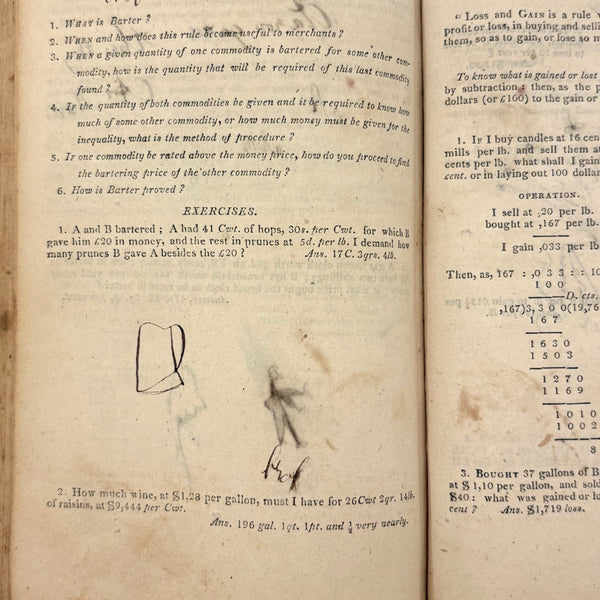 1. WHAT is Barter ?
2. WHEN and how does this rule become useful to merchants ?
3. WHEN a given quantity of one commodity is bartered for some other com-
modity, how is the quantity that will be required of this last commodity
found ?
4. If the quantity of both commodities be given and it be required to know how
much of some other commodity, or how much money must be given for the
inequality, what is the method of procedure ?
5. If one commodity be rated above the money price, how do you proceed to find
the bartering price of the other commodity ?
6. How is Barter proved ?
EXERCISES.
1. A and B bartered ; A had 41 Cwt. of hops, 30s. per Cwt. for which B
gave him £20 in money, and the rest in prunes at 5d. per lb. I demand how
many prunes B gave A besides the £20 ? Ans. 17C. 3qrs. 4lb.
2. How much wine, at $1,28 per gallon, must I have for 26Cwt 2qr. 14lb.
of raisins, at $9,444 per Cwt.
Ans. 196 gal. 1qt. 1pt. and ½ very nearly.
" Loss and GAIN is a rule
profit or loss, in buying and
them, so as to gain, or lose so
To know what is gained or lost
by subtraction : then, as the
dollars (or £100) to the gain or
1. If I buy candles at 16 cen
mills per lb. and sell them at
cents per lb. what shall I gain
cent. or in laying out 100
OPERATION.
I sell at ,20 per lb.
bought at ,167 per lb.
I gain ,033 per lb
Then, as, 167 : ,033 : :
100
D. cts.
,167)3,300(19,76
167
1630
1503
1270
1169
1010
1002
8
3. BOUGHT 37 gallons of
at $ 1,10 per gallon, and
$40 : what was gained or
cent ? Ans. $1,719 loss.